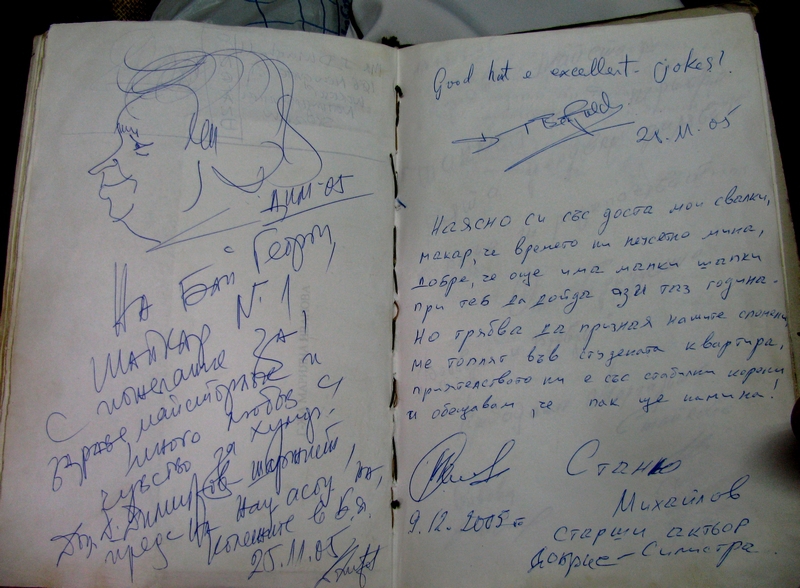 ДИМ-05
На Бай Георги,
ШАПКАР N.1
С пожелание за
здраве, майсторлък и
много любов с
чувство за хумор!
Димитров - шаржист
25.11.05
Good hat e excellent jokes!
21.11.05
Наясно си със доста мои свалки,
макар, че времето ни печетно мина,
добре, че още има малки шапки
при теб да дойда ази таз година.
Но трябва да призная нашите спомени
ме топлят във студената квартира,
приятелството ни е със стабилни корени
и обещавам, че пак ще намина!
Станю
Михайлов
9.12.2005г
старши актьор
Добрич-Силистра